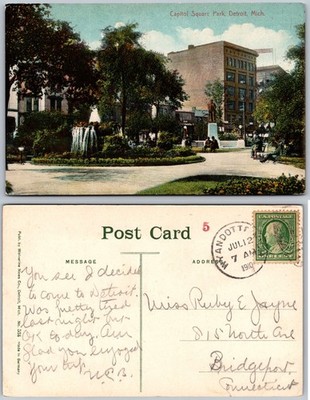 Capitol Square Park, Detroit, Mich.
Post Card
5
MESSAGE
ADDRESS
WYANDOTTE
JUL 12
7 AM
190
Pub. by Wolverine News Co., Detroit, Mich. No. 208 Made in Germany
You see I decided
to come to Detroit.
Was pretty tired
last night but
OK to-day. Am
glad you enjoyed
your trip.
Miss Ruby E. Jayne
815 North Ave
Bridgeport
Connecticut